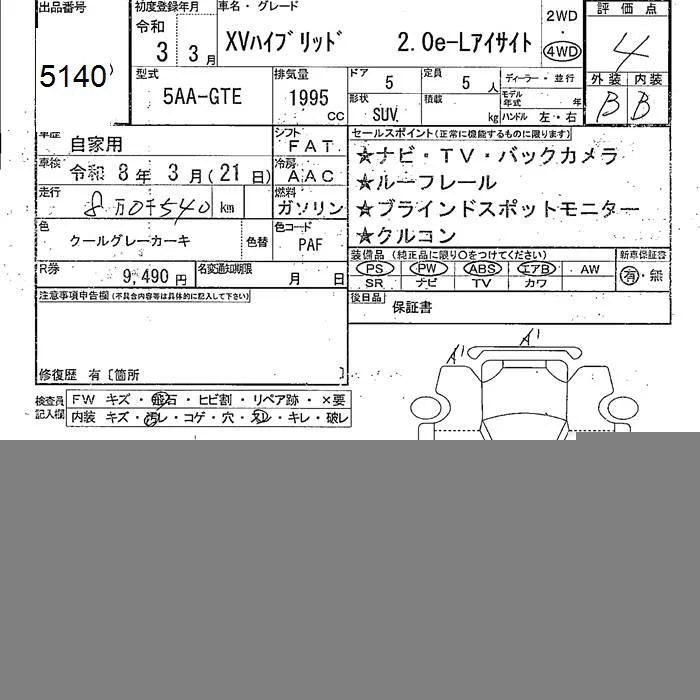 出品番号 初度登録年月 車名・グレード 評価点
5140
令和
3 3 月
XVハイブリッド 2.0e-Lアイサイト
2WD
4WD
4
型式
5AA-GTE
排気量
1995
CC
ドア 5
定員 5 人
ディーラー・並行
外装 内装
B B
形状 SUV
積載 kg
モデル年式 年
ハンドル 左・右
車歴 自家用
シフト FAT
セールスポイント(正常に機能するものに限ります)
車検 令和 8 年 3 月(21 日)
冷房 AAC
☆ナビ・TV・バックカメラ
☆ルーフレール
走行 8万0千540 km
燃料 ガソリン
☆ブラインドスポットモニター
☆クルコン
色 クールグレーカーキ 色替
色コード PAF
装備品 (純正品に限り○をつけてください) 新車保証書
PS PW ABS エアB AW 有・無
SR ナビ TV カワ
R券 9,490 円
名変通知期限 月 日
後日品 保証書
注意事項申告欄(不具合内容等は具体的に記入して下さい)
修復歴 有〔箇所 〕
A' A'
検査員記入欄
FW キズ・飛石・ヒビ割・リペア跡・×要
内装 キズ・汚レ・コゲ・穴・スレ・キレ・破レ